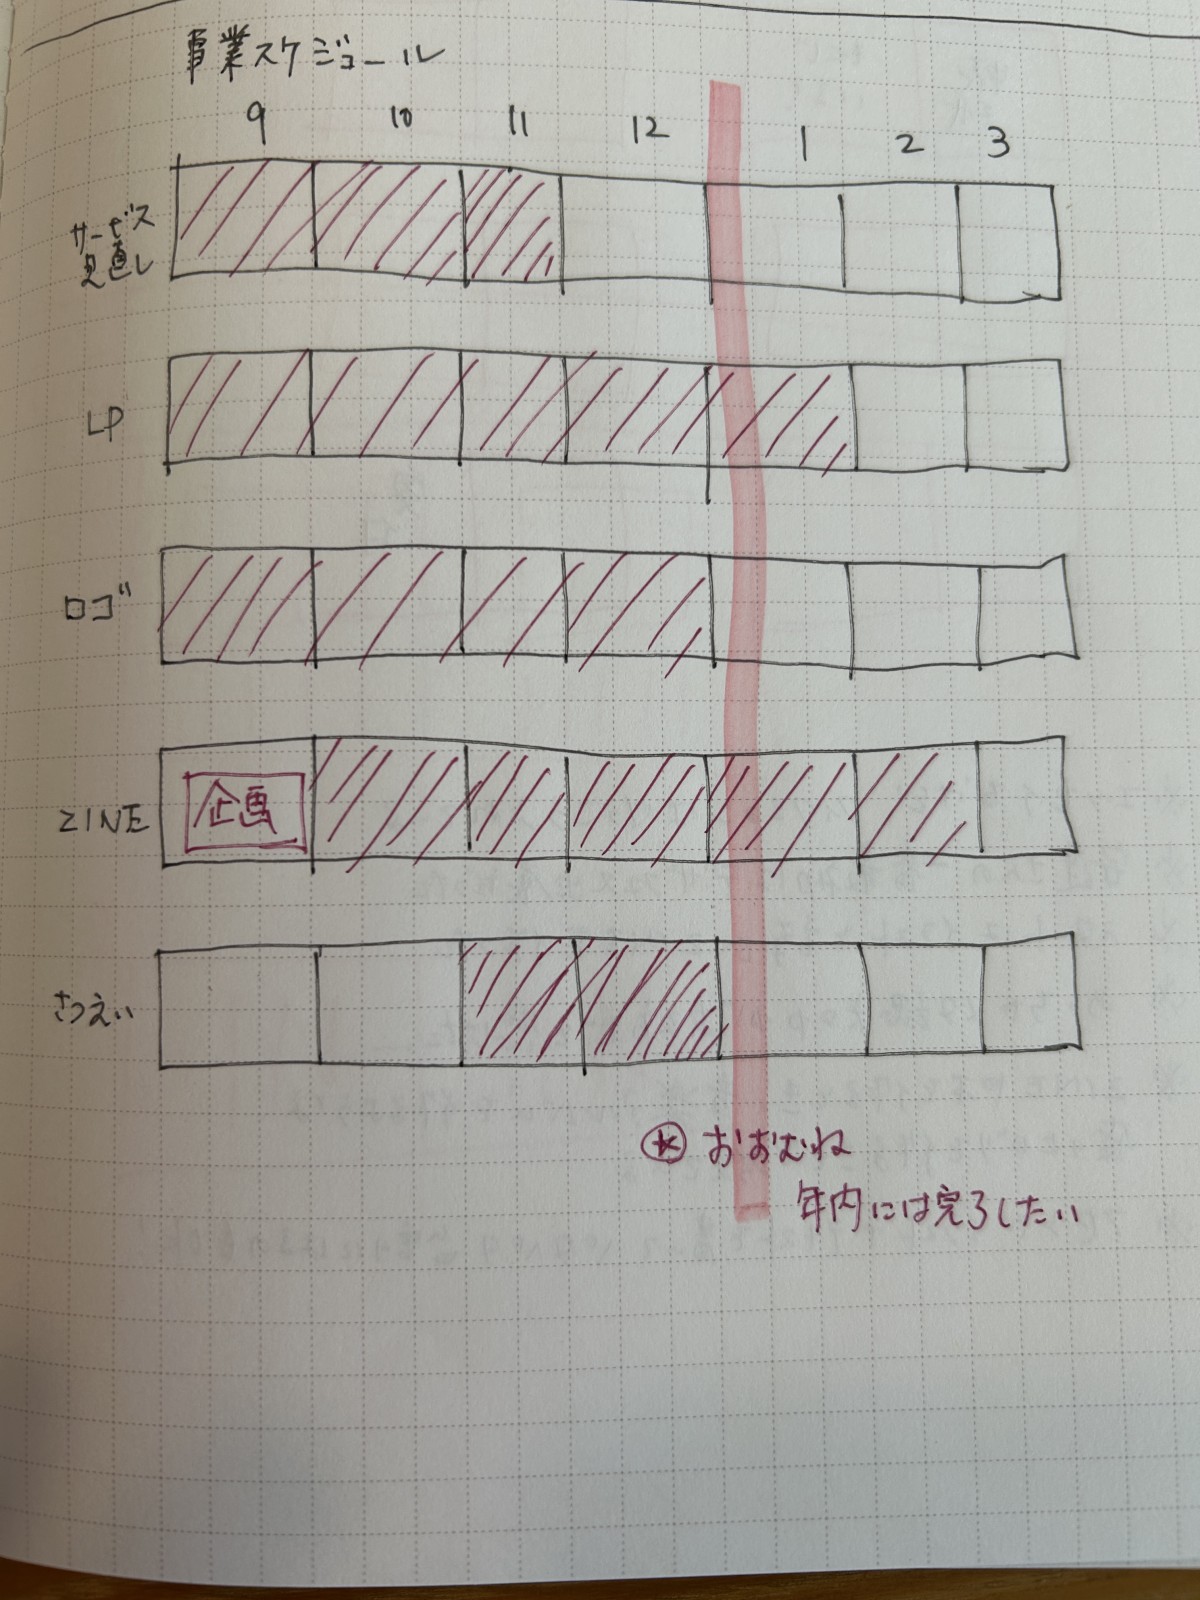 事業スケジュール
9 10 11 12 1 2 3
サービス
見直し
LP
ロゴ
ZINE 企画
さつえい
おおむね
年内には完了したい